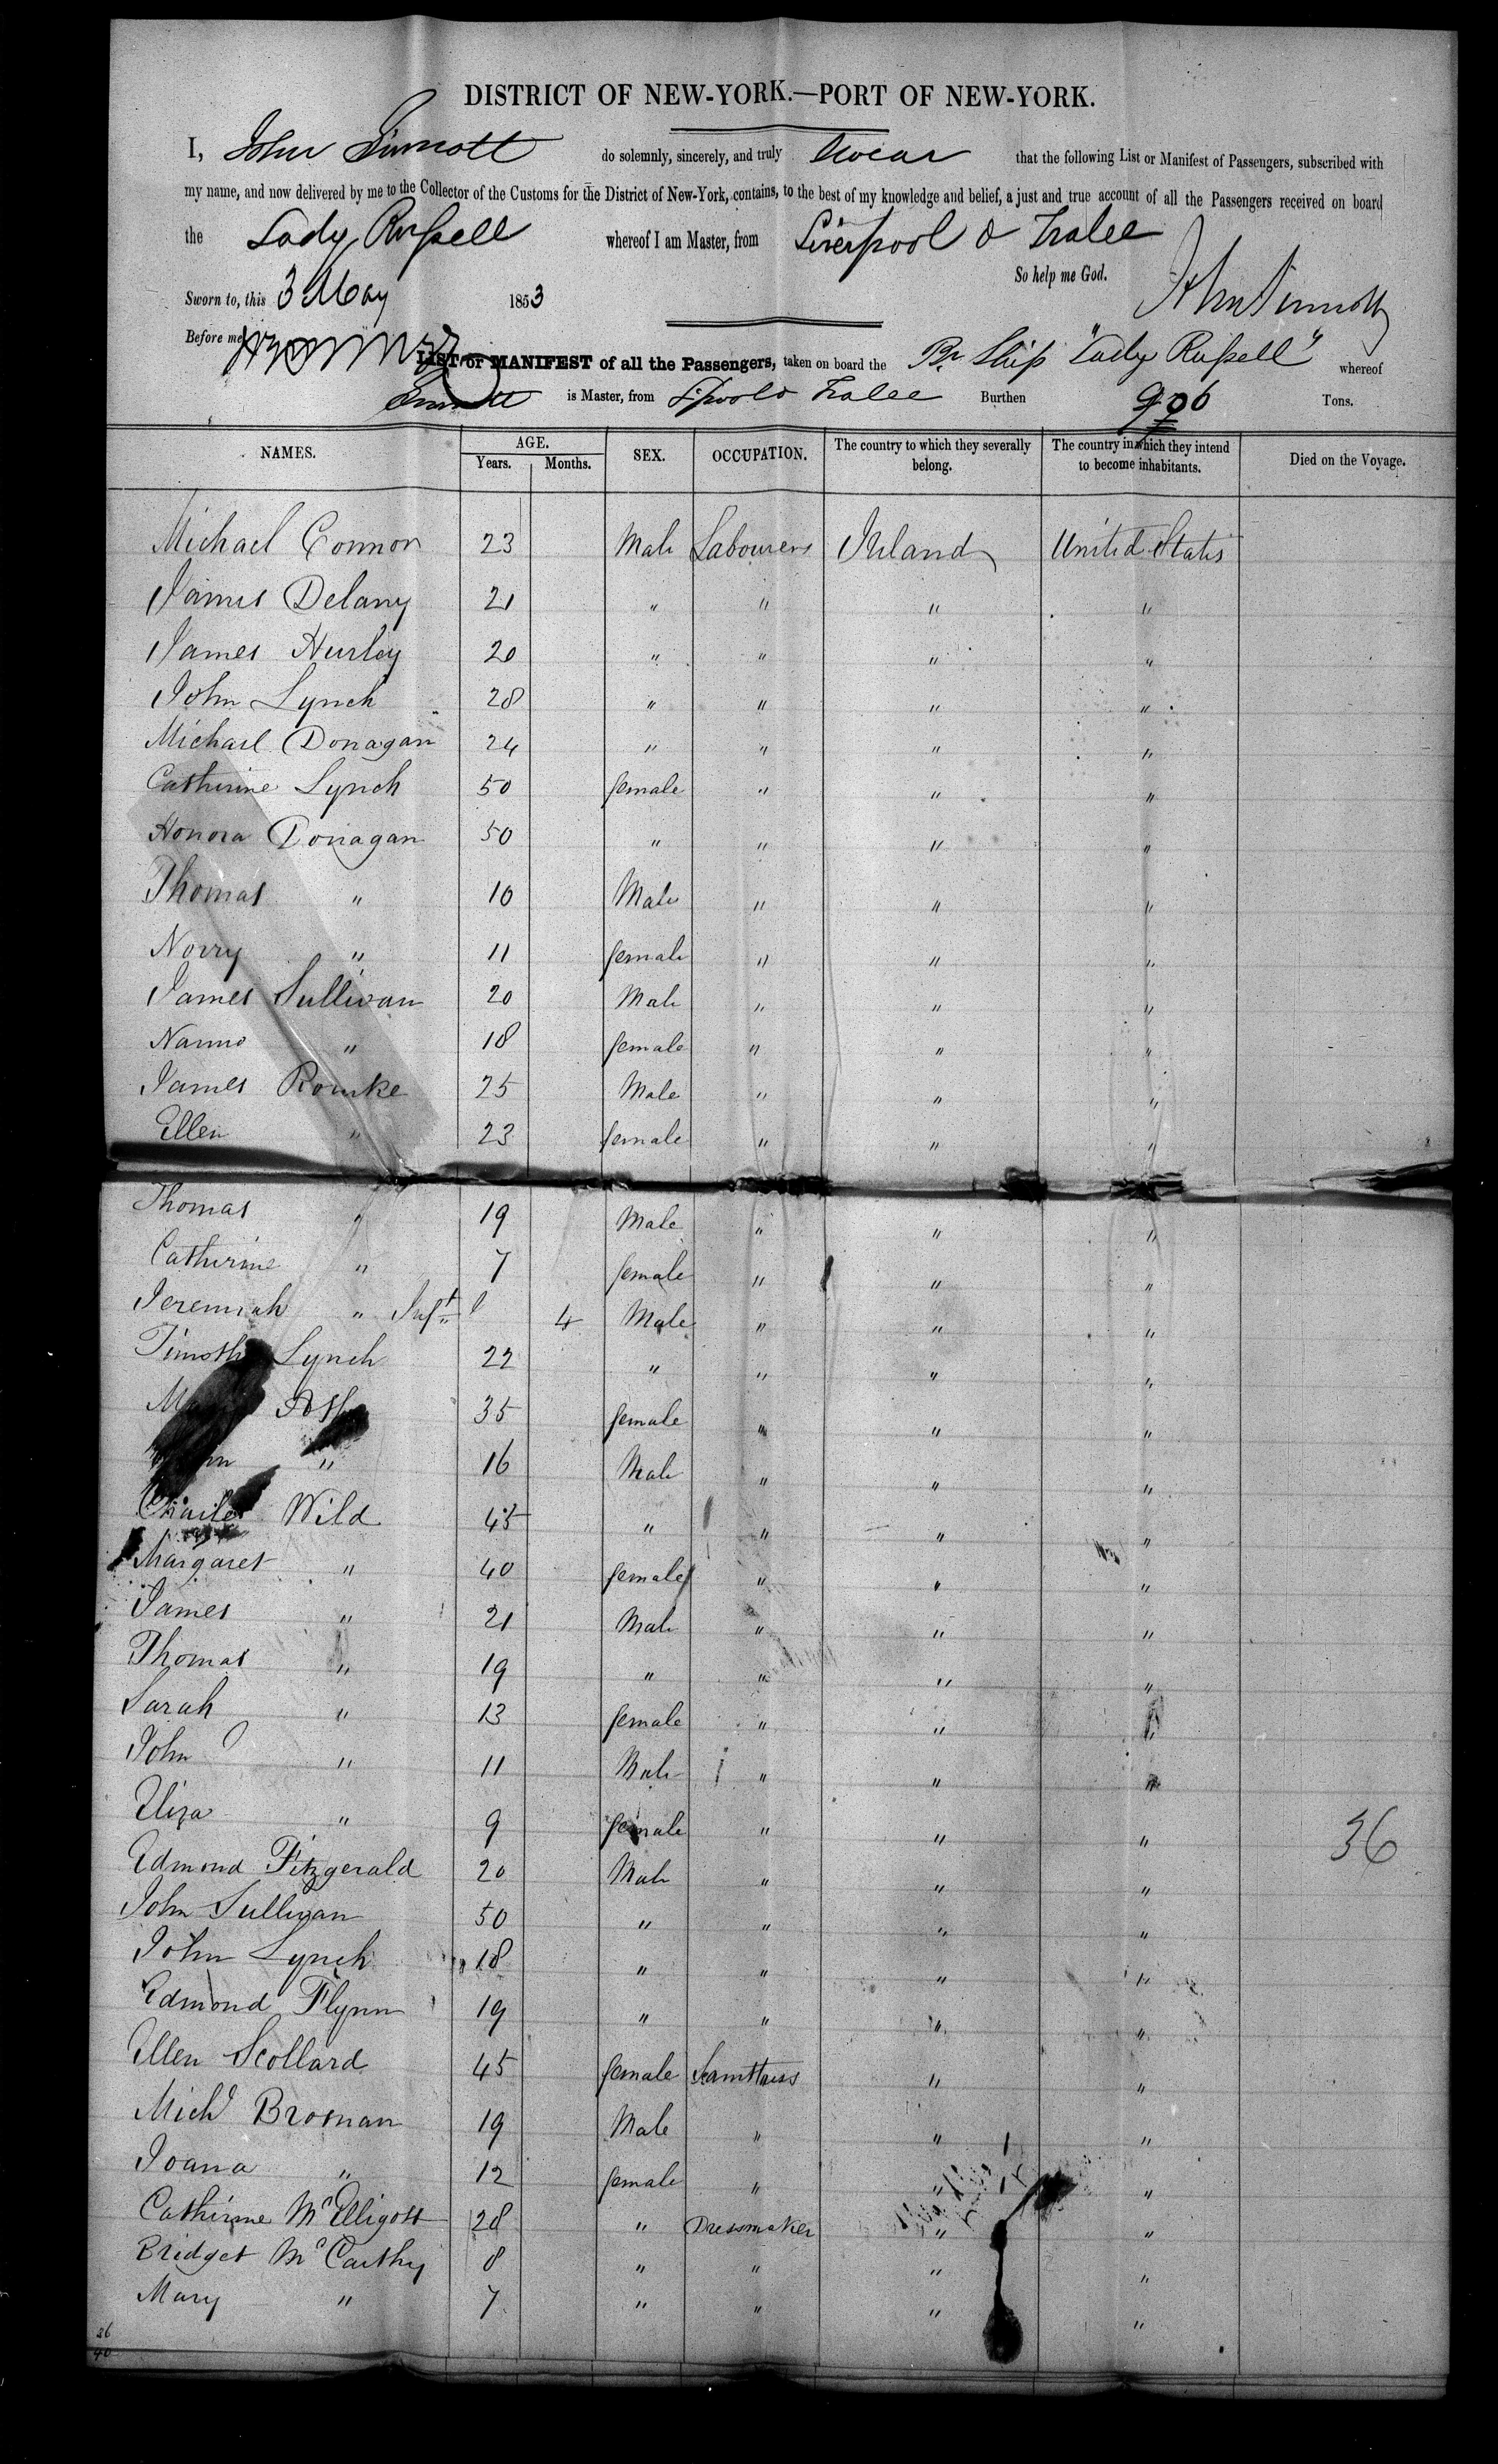 DISTRICT OF NEW-YORK.—PORT OF NEW-YORK.
I, John Sinnott do solemnly, sincerely, and truly Swear that the following List or Manifest of Passengers, subscribed with
my name, and now delivered by me to the Collector of the Customs for the District of New-York, contains, to the best of my knowledge and belief, a just and true account of all the Passengers received on board
the Lady Russell whereof I am Master, from Liverpool & Tralee
So help me God.
Sworn to, this 3 May 1853 John Sinnott
Before me
LIST or MANIFEST of all the Passengers, taken on board the Br Ship "Lady Russell" whereof
Sinnott is Master, from L'pool & Tralee Burthen 906 Tons.
NAMES. AGE. Years. Months. SEX. OCCUPATION. The country to which they severally belong. The country in which they intend to become inhabitants. Died on the Voyage.
Michael Connor 23 Male Labourers Ireland United States
James Delany 21 " " " "
James Hurley 20 " " " "
John Lynch 28 " " " "
Michael Donagan 24 " " " "
Catherine Lynch 50 female " " "
Honora Donagan 50 " " " "
Thomas " 10 Male " " "
Norry " 11 female " " "
James Sullivan 20 Male " " "
Nanno " 18 female " " "
James Rourke 25 Male " " "
Ellen " 23 female " " "
Thomas " 19 Male " " "
Catherine " 7 female " " "
Jeremiah " Inft 4 Male " " "
Timothy Lynch 22 " " " "
35 female " " "
" 16 Male " " "
Charles Wild 45 " " " "
Margaret " 40 female " " "
James " 21 Male " " "
Thomas " 19 " " " "
Sarah " 13 female " " "
John " 11 Male " " "
Eliza " 9 female " " "
36
Edmond Fitzgerald 20 Male " " "
John Sullivan 50 " " " "
John Lynch 18 " " " "
Edmond Flynn 19 " " " "
Ellen Scollard 45 female Seamstress " "
Michl Brosnan 19 Male " " "
Joana " 12 female " " "
Catherine McElligott 28 " Dressmaker " "
Bridget McCarthy 8 " " " "
Mary " 7 " " " "
36
40